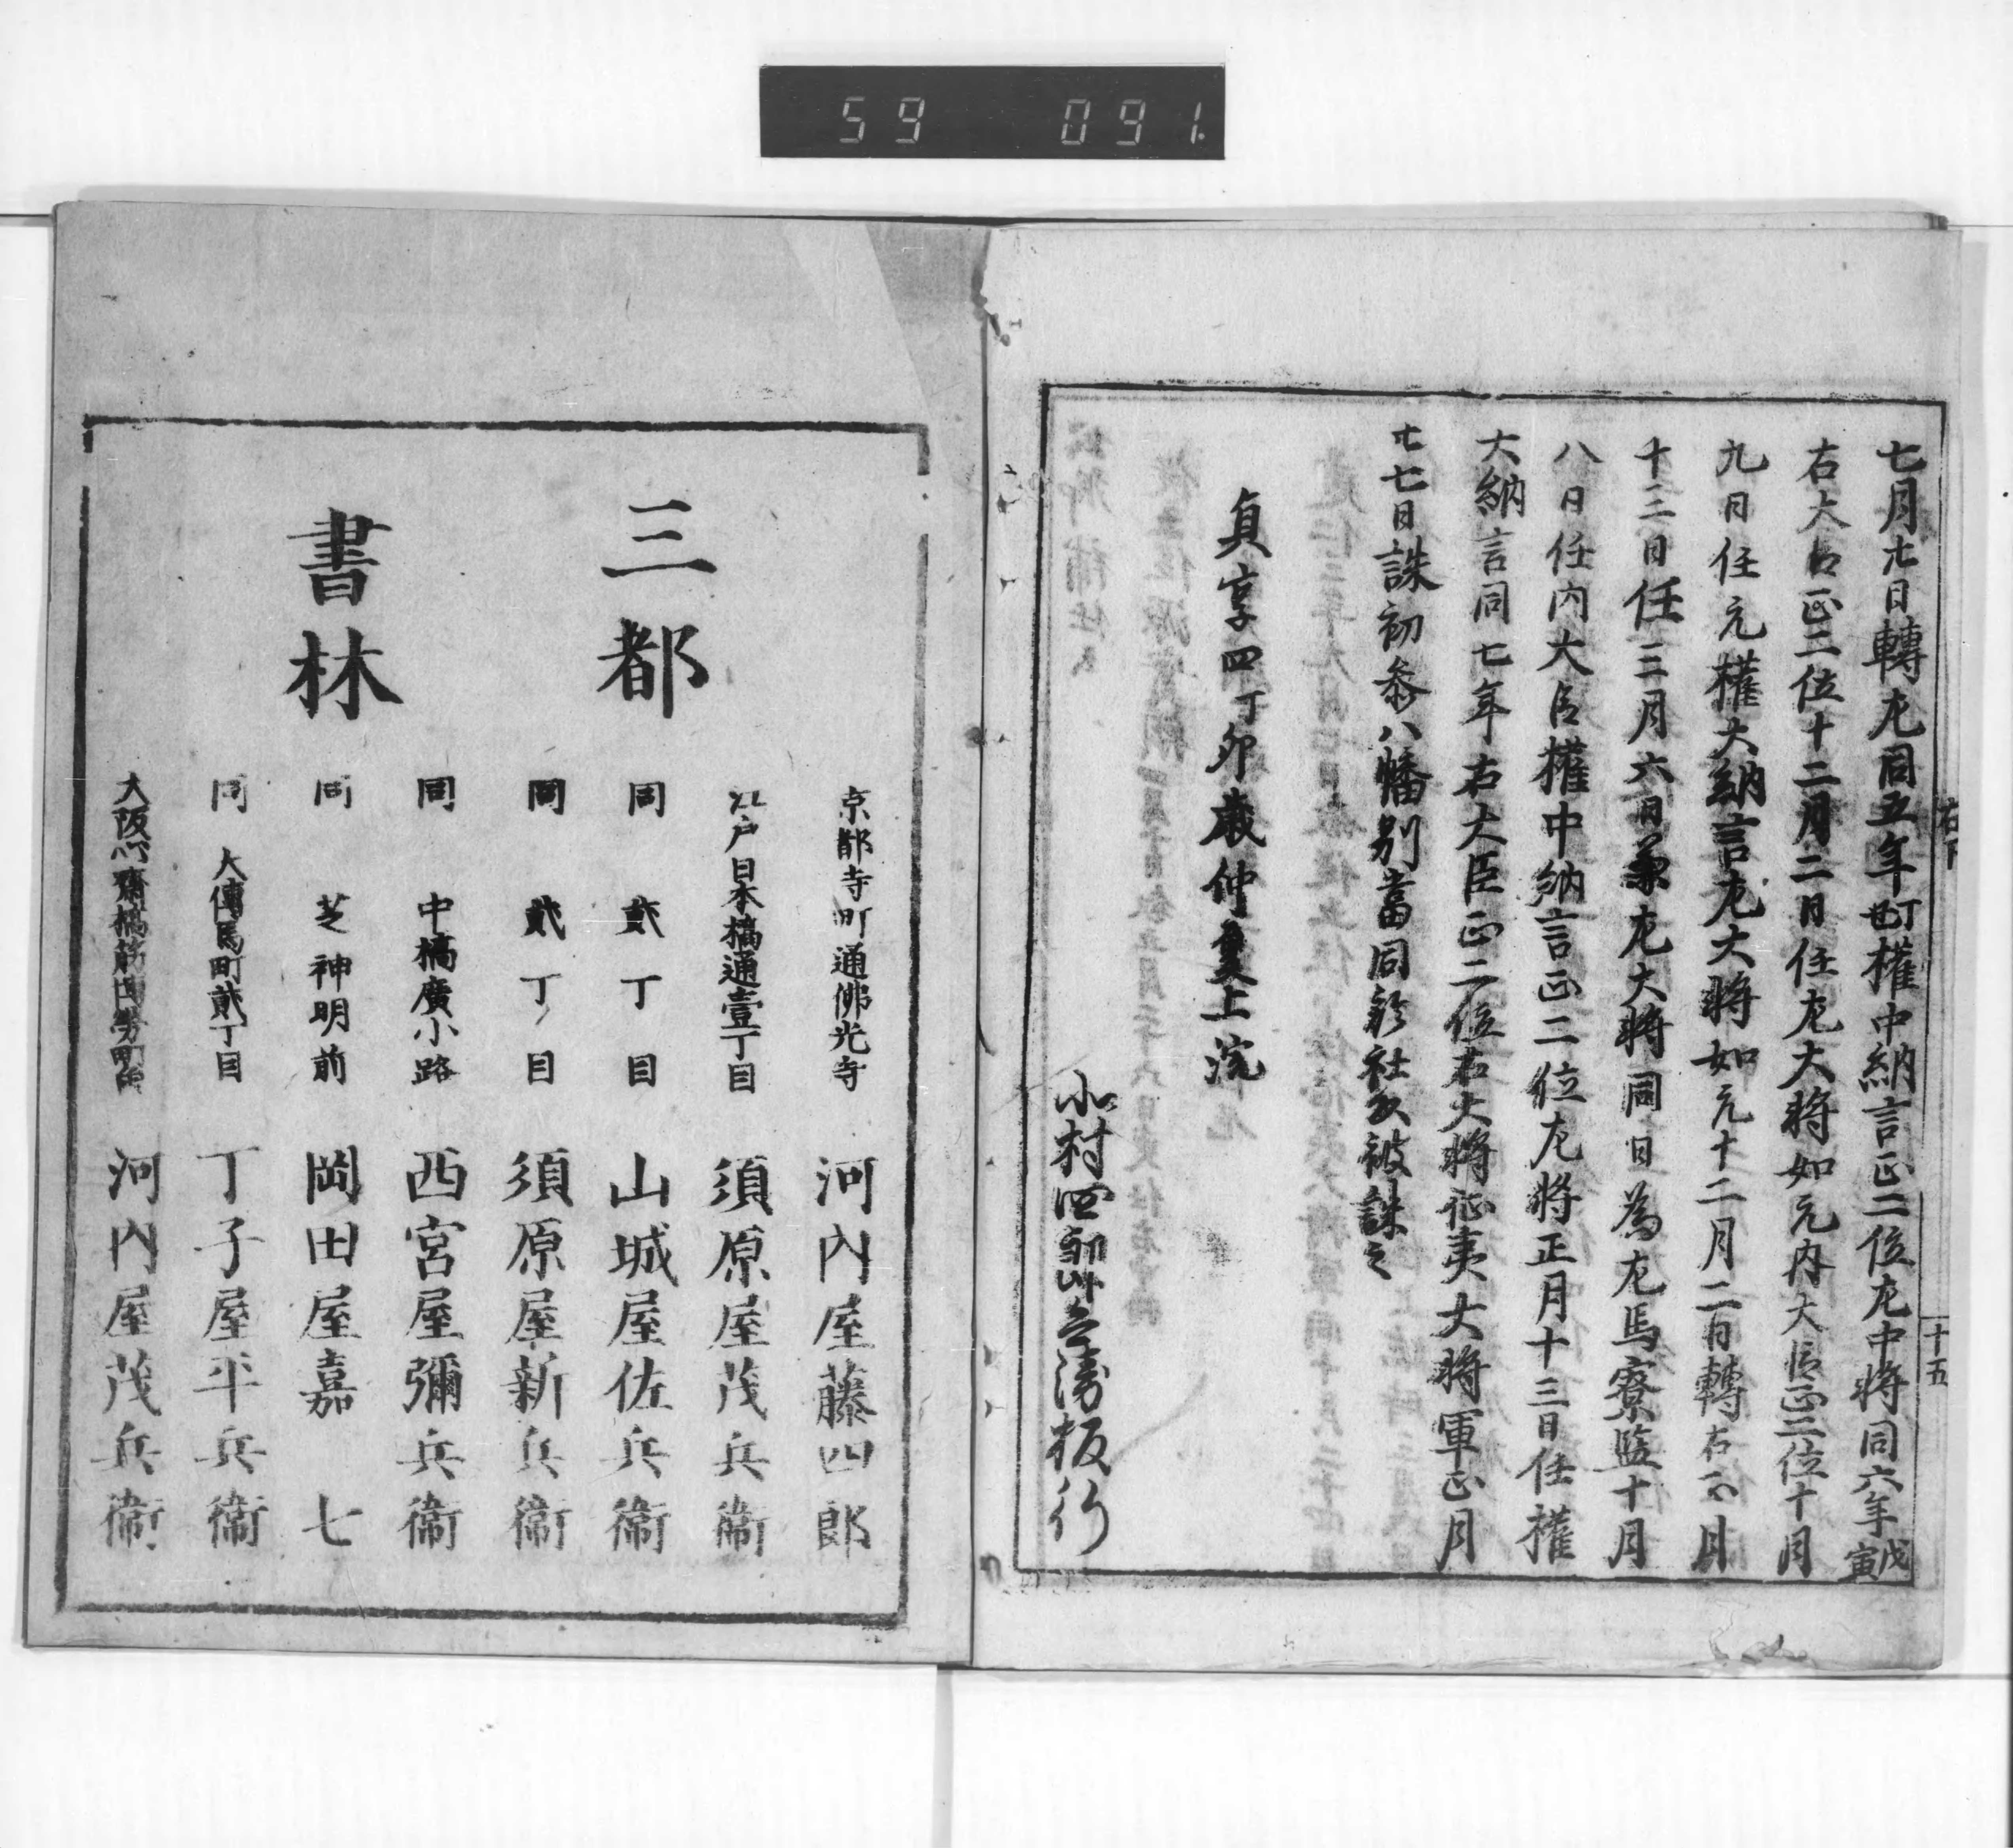 59 091
七月廿日轉左同五年丁丑權中納言正二位左中將同六年戊寅
右大臣正二位十二月二日任左大將如元内大臣正二位十月
九日任元權大納言左大將如元十二月二日轉右正月
十三日任三月六日兼左大將同日為左馬寮監十月
八日任内大臣權中納言正二位左將正月十三日任權
大納言同七年右大臣正二位右大將征夷大將軍正月
廿七日誅初参八幡別當同於社頭被誅之
貞享四丁卯歳仲夏上浣
板行
十五
三都
書林
京都寺町通佛光寺 河内屋藤四郎
江戸日本橋通壹丁目 須原屋茂兵衞
同 貳丁目 山城屋佐兵衞
同 貳丁目 須原屋新兵衞
同 中橋廣小路 西宮屋彌兵衞
同 芝神明前 岡田屋嘉七
同 大傳馬町貳丁目 丁子屋平兵衞
大阪心齋橋筋博勞町角 河内屋茂兵衞